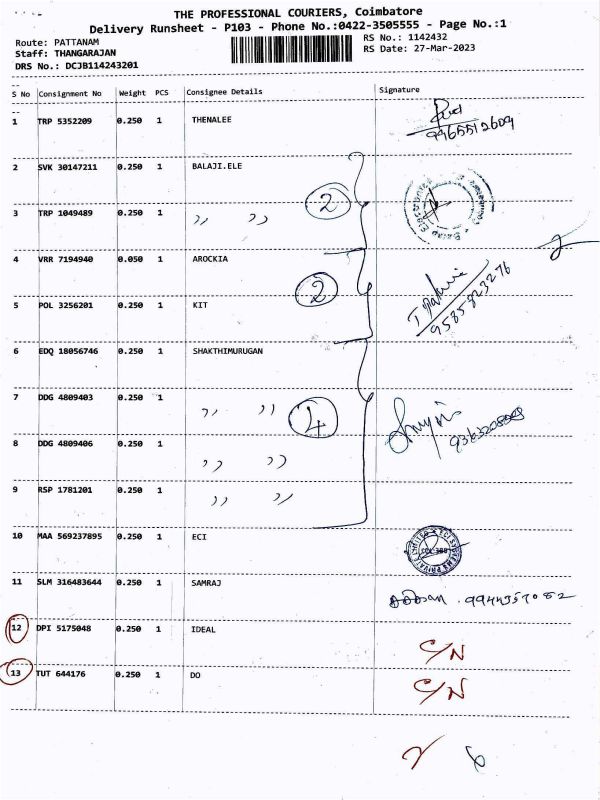 THE PROFESSIONAL COURIERS, Coimbatore
Delivery Runsheet - P103 - Phone No.:0422-3505555 - Page No.:1
Route: PATTANAM RS No.: 1142432
Staff: THANGARAJAN RS Date: 27-Mar-2023
DRS No.: DCJB114243201
S No Consignment No Weight PCS Consignee Details Signature
1 TRP 5352209 0.250 1 THENALEE
9965512609
2 SVK 30147211 0.250 1 BALAJI.ELE
2
3 TRP 1049489 0.250 1 ,, ,,
4 VRR 7194940 0.050 1 AROCKIA
2
9585823276
5 POL 3256201 0.250 1 KIT
6 EDQ 18056746 0.250 1 SHAKTHIMURUGAN
7 DDG 4809403 0.250 1 ,, ,,
4
8 DDG 4809406 0.250 1 ,, ,,
9 RSP 1781201 0.250 1 ,, ,,
10 MAA 569237895 0.250 1 ECI
11 SLM 316483644 0.250 1 SAMRAJ
9944357082
12 DPI 5175048 0.250 1 IDEAL C/N
13 TUT 644176 0.250 1 DO C/N